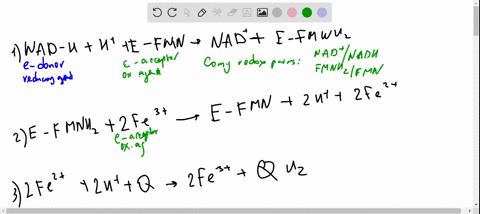 1) NAD-H + H⁺ + E-FMN → NAD⁺ + E-FMNH₂
e-donor
reducing agent
e-acceptor
ox agent
Conj redox pairs: NAD⁺/NADH
FMNH₂/FMN
2) E-FMNH₂ + 2Fe³⁺ → E-FMN + 2H⁺ + 2Fe²⁺
e-acceptor
ox. ag
3) 2Fe²⁺ + 2H⁺ + Q → 2Fe³⁺ + QH₂